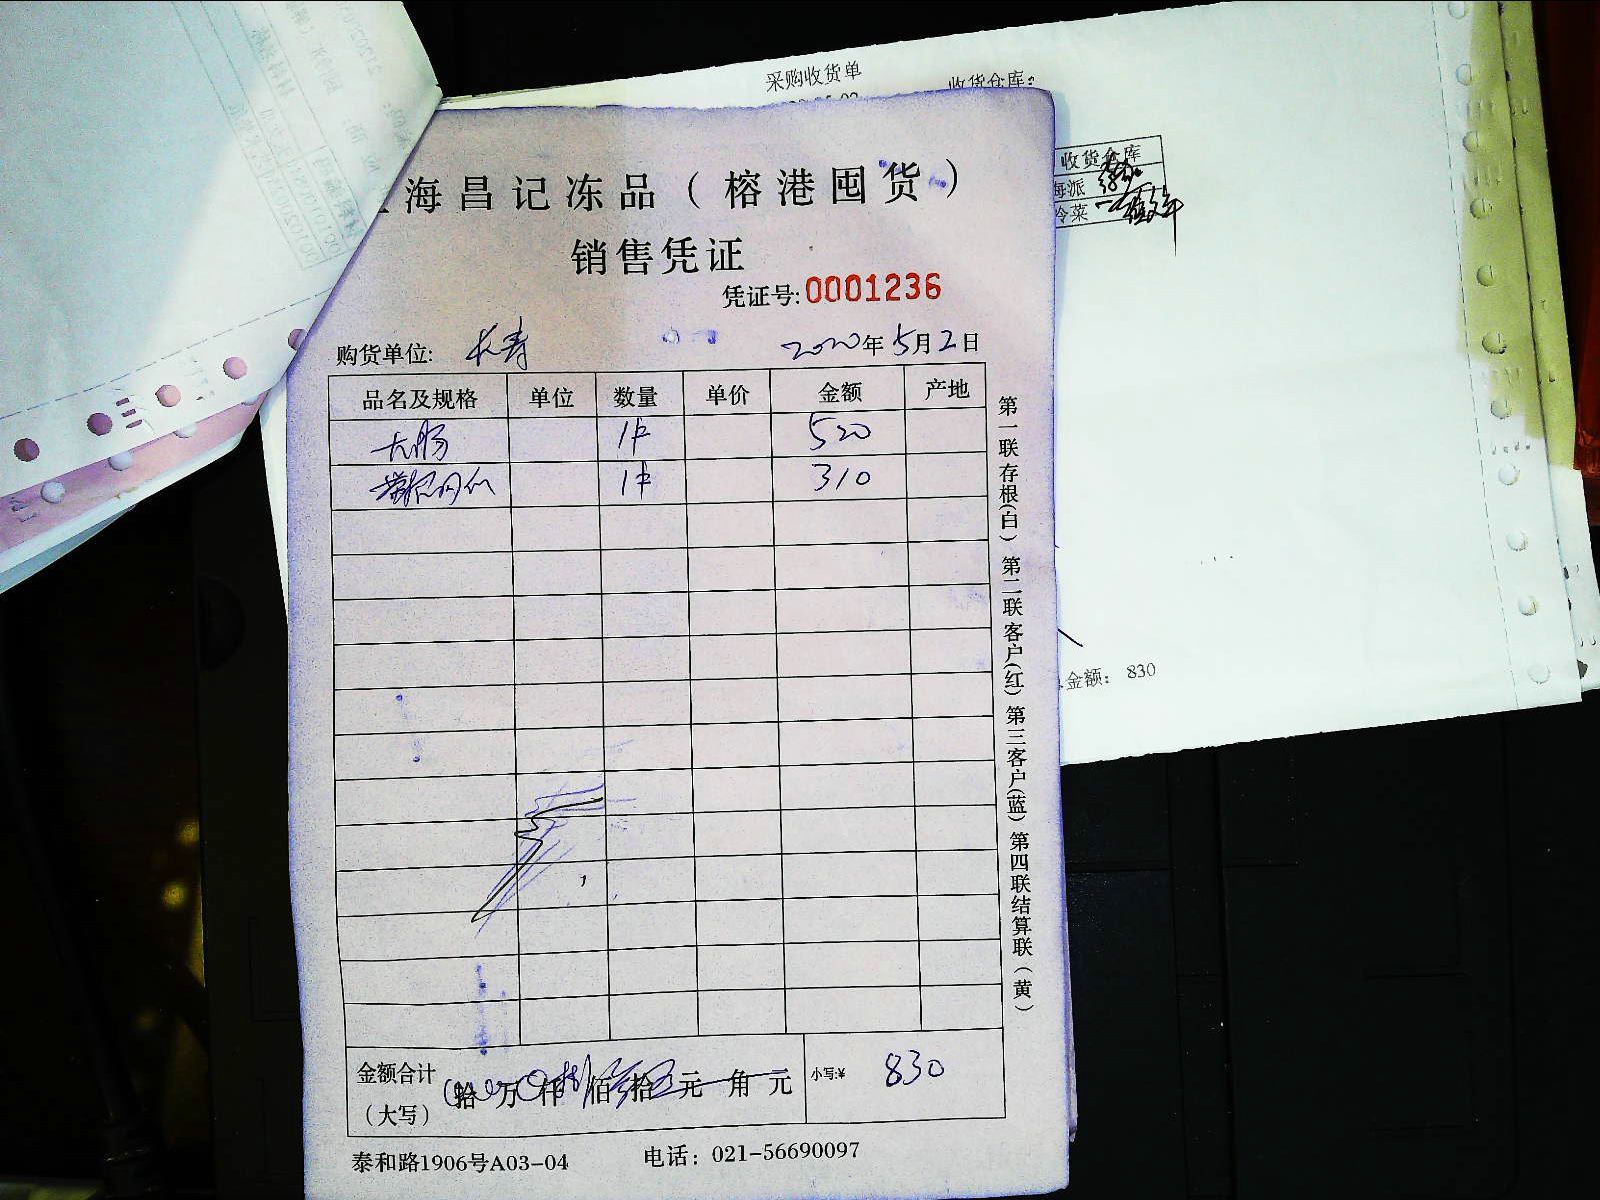 采购收货单
收货仓库:
收货仓库
海派
冷菜
海昌记冻品（榕港囤货）
销售凭证
凭证号:0001236
购货单位: 长寿 2020年5月2日
品名及规格 单位 数量 单价 金额 产地
大肠 1件 520
1件 310
第一联存根(白) 第二联客户(红) 第三客户(蓝) 第四联结算联(黄)
金额合计
(大写) 拾 万 仟 佰 拾 元 角 元 小写:¥ 830
泰和路1906号A03-04 电话: 021-56690097
金额: 830